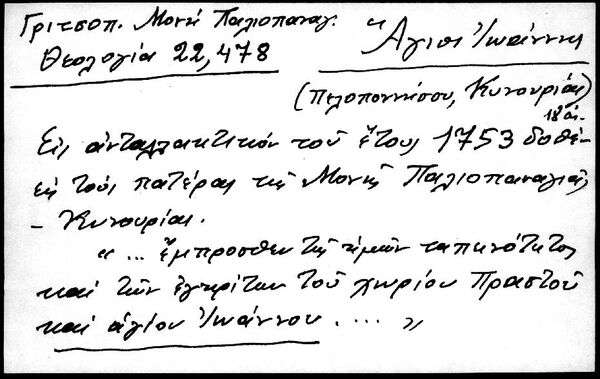 Γριτσοπ. Μονή Παλιοπαναγ.
Θεολογία 22,478
Ἅγιοι Ἰωάννης
(Πελοποννήσου, Κυνουρίας)
18 αι.
Εἰς ἀνταλλακτικόν τοῦ ἔτους 1753 δοθέν
εἰς τούς πατέρας τῆς Μονῆς Παλιοπαναγιᾶς
- Κυνουρίας.
"... ἔμπροσθεν τῆς ἡμῶν ταπεινότητος
καί τῶν ἐγκρίτων τοῦ χωρίου Πραστοῦ
καί ἁγίου Ἰωάννου .... "